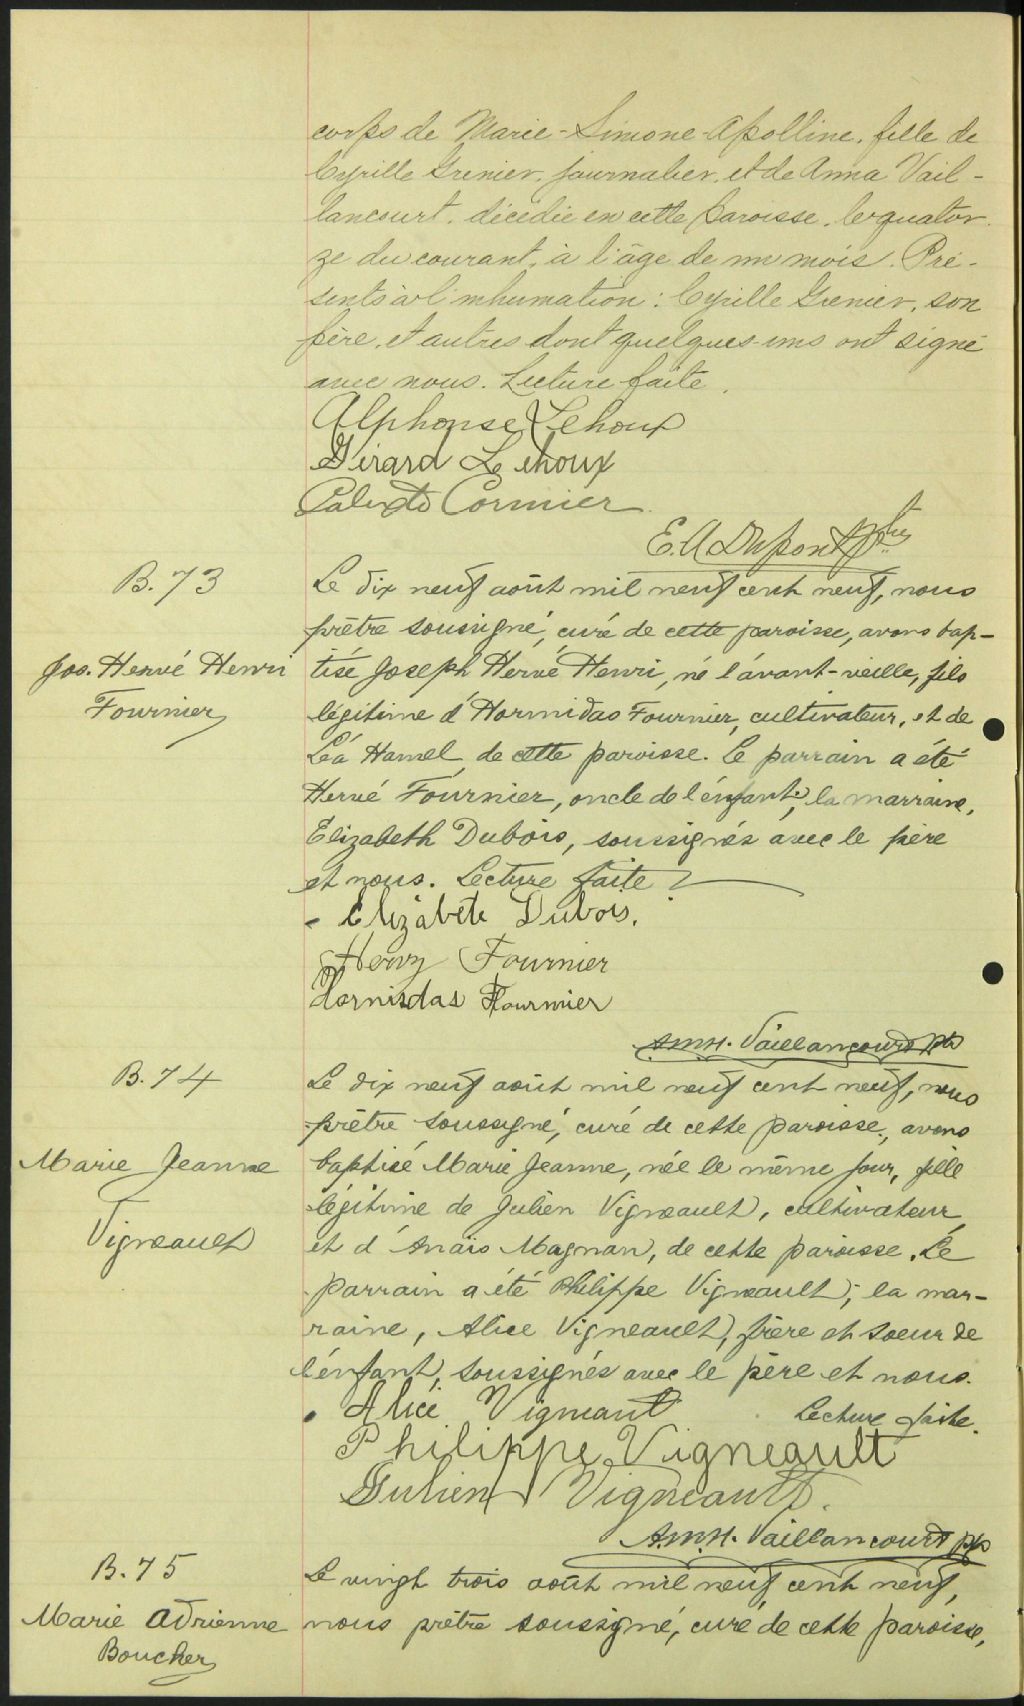 corps de Marie-Simone-Apolline, fille de
Cyrille Grenier, journalier, et de Anna Vail-
lancourt, décédée en cette paroisse, le quator-
ze du courant, à l'âge de un mois. Pré-
sents à l'inhumation : Cyrille Grenier, son
père, et autres dont quelques-uns ont signé
avec nous. Lecture faite.
Alphonse Lehoux
Gérard Lehoux
Calixte Cormier
E. A. Dupont Ptre
B. 73
Jos. Hervé Henri
Fournier
Le dix neuf août mil neuf cent neuf, nous
prêtre soussigné, curé de cette paroisse, avons bap-
tisé Joseph Hervé Henri, né l'avant-veille, fils
légitime d'Hormidas Fournier, cultivateur, et de
Léa Hamel de cette paroisse. Le parrain a été
Hervé Fournier, oncle de l'enfant, la marraine,
Elizabeth Dubois, soussignés avec le père
et nous. Lecture faite
Elizabete Dubois.
Hervy Fournier
Hornisdas Fournier
A.M.H. Vaillancourt ptre
B. 74
Marie Jeanne
Vigneault
Le dix neuf août mil neuf cent neuf, nous
prêtre soussigné, curé de cette paroisse, avons
baptisé Marie Jeanne, née le même jour, fille
légitime de Julien Vigneault, cultivateur
et d'Anaïs Magnan, de cette paroisse. Le
parrain a été Philippe Vigneault; la mar-
raine, Alice Vigneault, frère et soeur de
l'enfant, soussignés avec le père et nous.
Lecture faite.
Alice Vigneaut
Philippe Vigneault
Julien Vigneault.
A.M.H. Vaillancourt ptre
B. 75
Marie Adrienne
Boucher
Le vingt trois août mil neuf cent neuf,
nous prêtre soussigné, curé de cette paroisse,